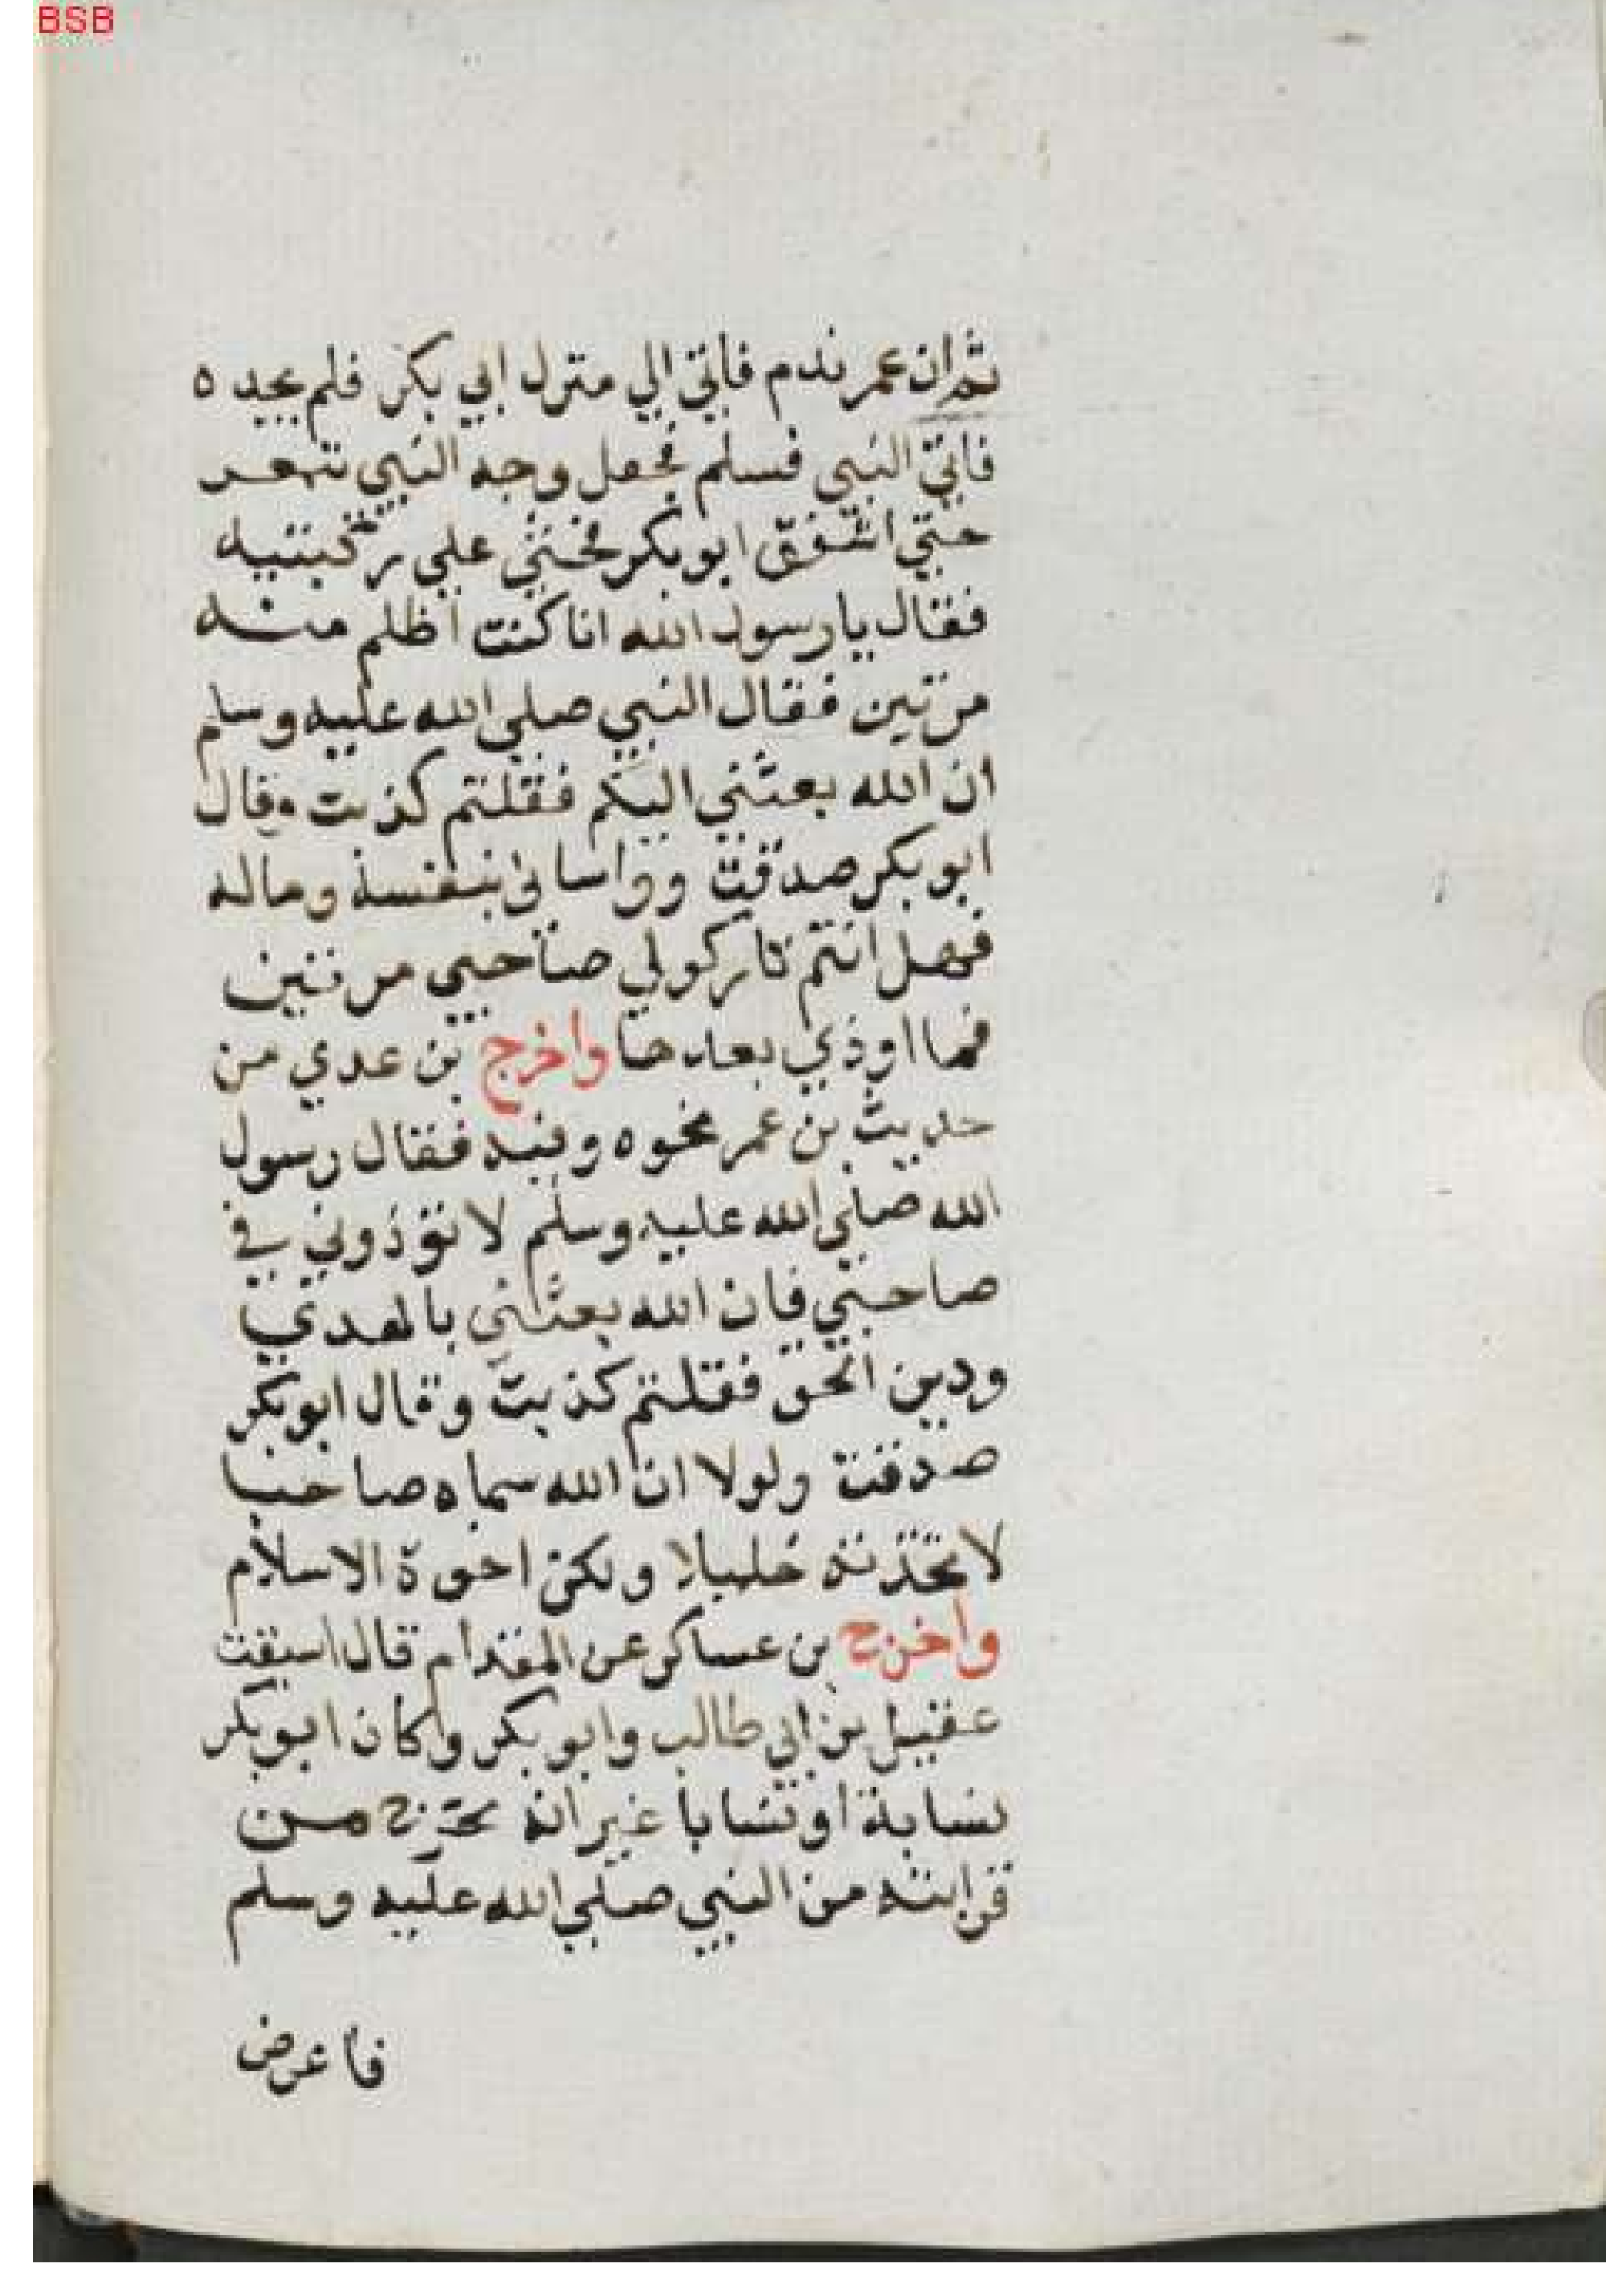 BSB
ثم ان عمر ندم فاتي الي منزل ابي بكر فلم يجده
فاتي النبي فسلم فجعل وجه النبي يتمعر
حتي اشفق ابو بكر فجثي علي ركبتيه
فقال يا رسول الله انا كنت اظلم منه
مرتين فقال النبي صلي الله عليه وسلم
ان الله بعثني اليكم فقلتم كذبت وقال
ابو بكر صدقت وواساني بنفسه وماله
فهل انتم تاركولي صاحبي مرتين
فما اوذي بعدها واخرج بن عدي من
حديث بن عمر نحوه وفيه فقال رسول
الله صلي الله عليه وسلم لا تؤذوني في
صاحبي فان الله بعثني بالهدي
ودين الحق فقلتم كذبت وقال ابو بكر
صدقت ولولا ان الله سماه صاحبا
لاتخذته خليلا ولكن اخوة الاسلام
واخرج بن عساكر عن المقدام قال استبت
عقيل بن ابي طالب وابو بكر وكان ابو بكر
نسابة او نسابا غير انه تحرج من
قرابته من النبي صلي الله عليه وسلم
فاعرض